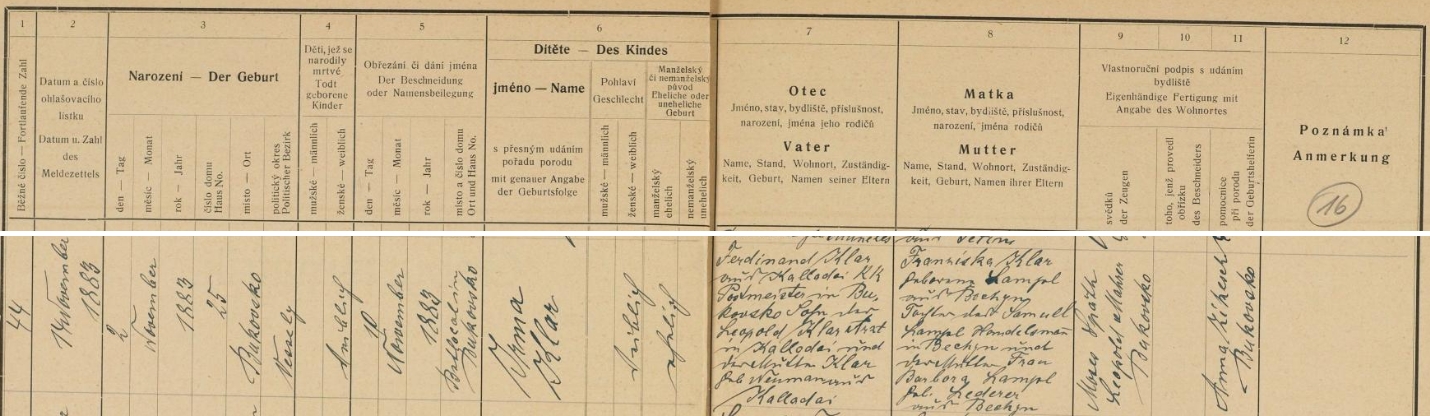 1
2
3
4
5
6
7
8
9
10
11
12
Běžné číslo — Fortlaufende Zahl
Datum a číslo
ohlašovacího
lístku
Datum u. Zahl
des
Meldezettels
Narození — Der Geburt
den — Tag
měsíc — Monat
rok — Jahr
číslo domu
Haus No.
místo — Ort
politický okres
Politischer Bezirk
Děti, jež se
narodily
mrtvé
Todt
geborene
Kinder
mužské — männlich
ženské — weiblich
Obřezání či dání jména
Der Beschneidung
oder Namensbeilegung
den — Tag
měsíc — Monat
rok — Jahr
místo a číslo domu
Ort und Haus No.
Dítěte — Des Kindes
jméno — Name
s přesným udáním
pořadu porodu
mit genauer Angabe
der Geburtsfolge
Pohlaví
Geschlecht
mužské — männlich
ženské — weiblich
Manželský
či nemanželský
původ
Eheliche oder
uneheliche
Geburt
manželský
ehelich
nemanželský
unehelich
Otec
Jméno, stav, bydliště, příslušnost,
narození, jména jeho rodičů
Vater
Name, Stand, Wohnort, Zuständig-
keit, Geburt, Namen seiner Eltern
Matka
Jméno, stav, bydliště, příslušnost,
narození, jména rodičů
Mutter
Name, Stand, Wohnort, Zuständig-
keit, Geburt, Namen ihrer Eltern
Vlastnoruční podpis s udáním
bydliště
Eigenhändige Fertigung mit
Angabe des Wohnortes
svědků
der Zeugen
toho, jenž provedl
obřízku
des Beschneiders
pomocnice
při porodu
der Geburtshelferin
Poznámka
Anmerkung
16
44
14 November
1883
2
November
1883
25
Bukovsko
Vessely
weiblich
10
November
1883
Bethlocal in
Bukovsko
Irma
Klar
weiblich
ehelich
Ferdinand Klar
aus Kallodai KK
Postmeister in Bu-
kovsko Sohn des
Leopold Klar Arzt
in Kallodai und
der Mutter Klar
geb Neuman aus
Kallodai
Franziska Klar
geborene Lampl
aus Bechyn
Tochter des Samuel
Lampl Handelsman
in Bechyn und
der Mutter Frau
Barbora Lampl
geb. Lederer
aus Bechyn
Moses
Leopold
Bukovsko
Anna
Bukovsko